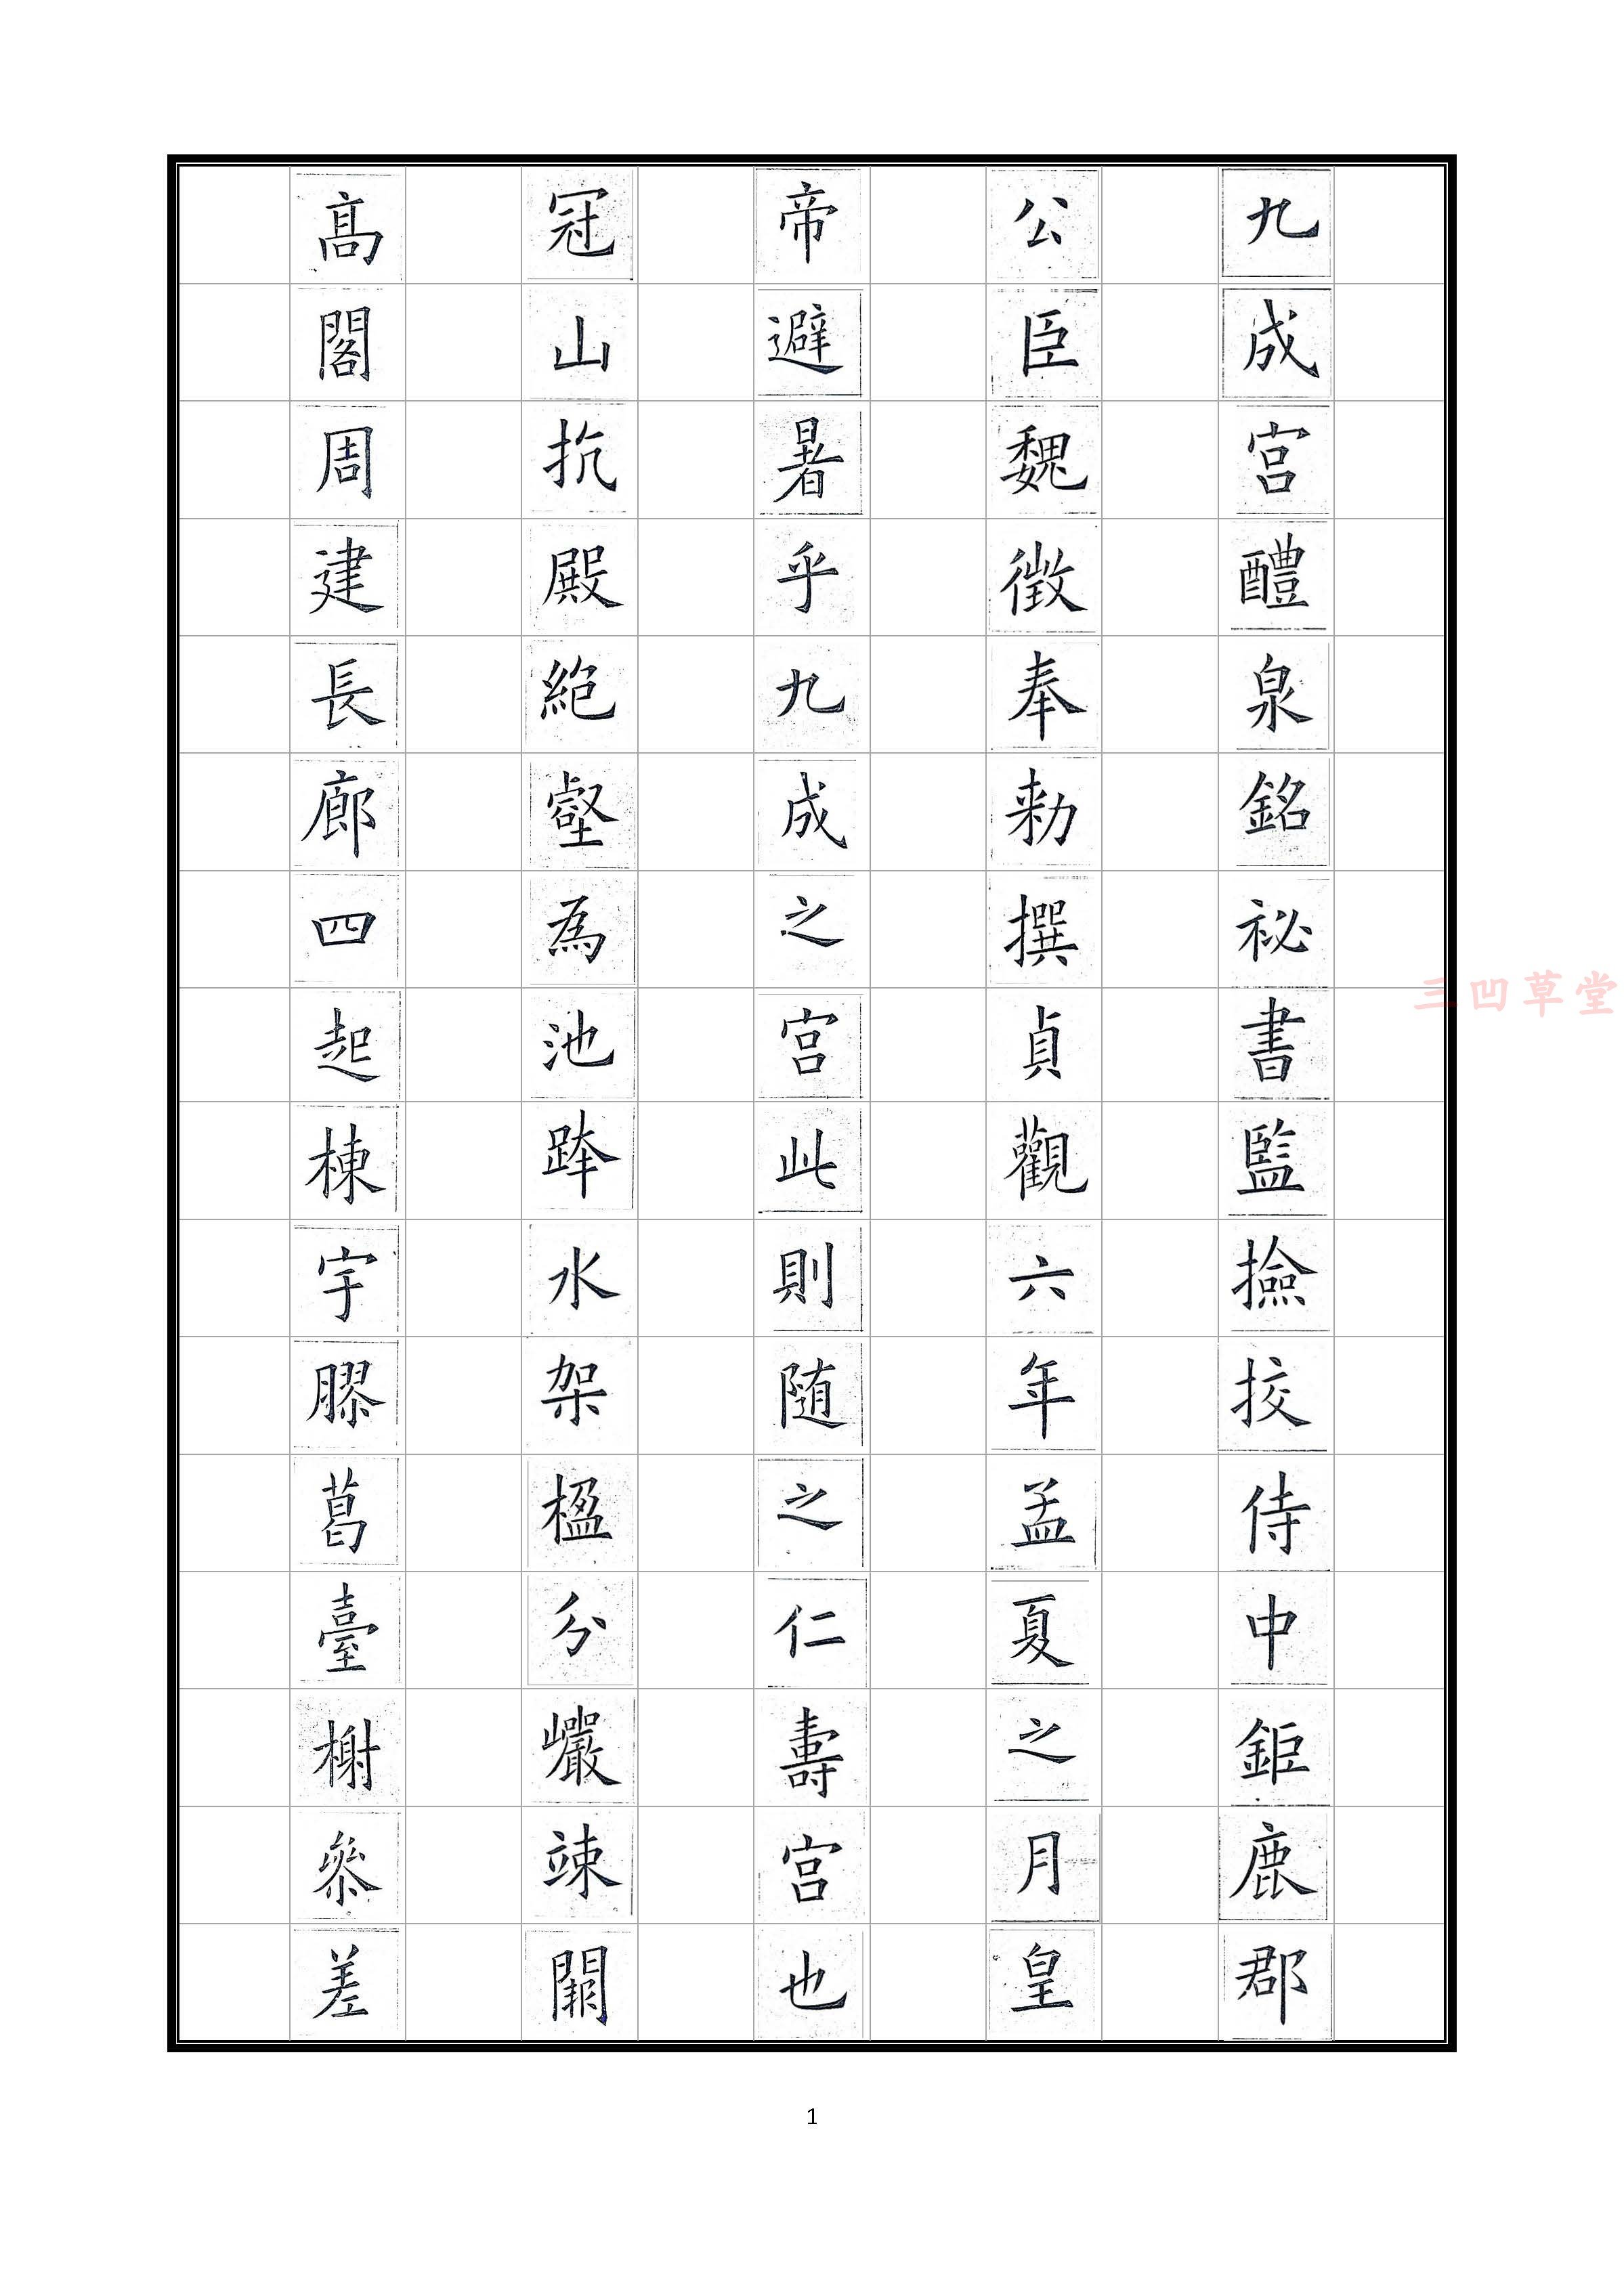 九成宮醴泉銘祕書監撿挍侍中鉅鹿郡
公臣魏徵奉勑撰貞觀六年孟夏之月皇
帝避暑乎九成之宮此則随之仁壽宮也
冠山抗殿絶壑為池跨水架楹分巖竦闕
髙閣周建長廊四起棟宇膠葛臺榭叅差
三凹草堂
1